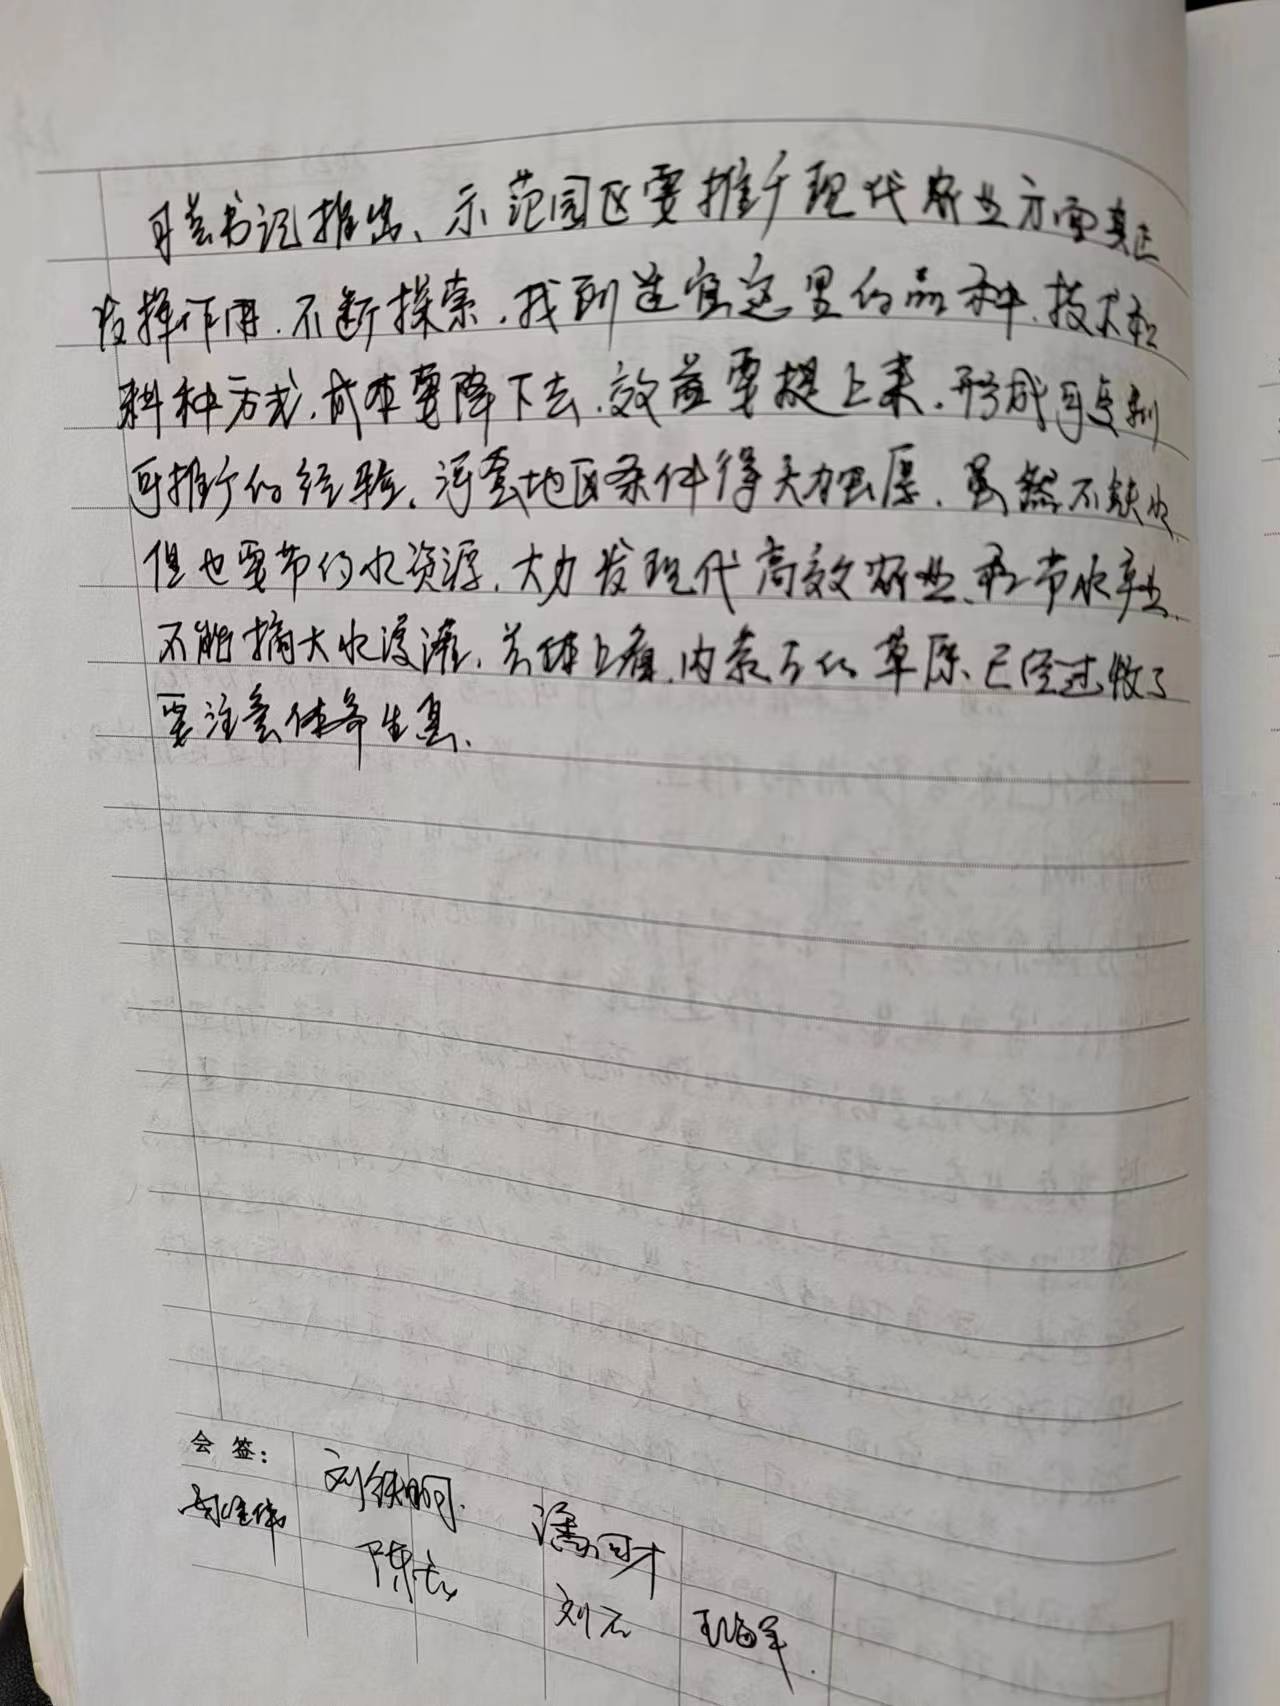 书记指出、示范园区要推广现代农业方面真正
发挥作用.不断探索.找到适宜这里的品种.技术和
耕种方式.成本要降下去.效益要提上来.形成可复制
可推广的经验.河套地区条件得天独厚.虽然不缺水
但也要节约水资源.大力发现代高效农业、和节水产业
不能搞大水漫灌.总体上看.内蒙古的草原、已经过牧了
要注意休养生息.
会 签:
刘铁明
陈
潘
刘石
王海军